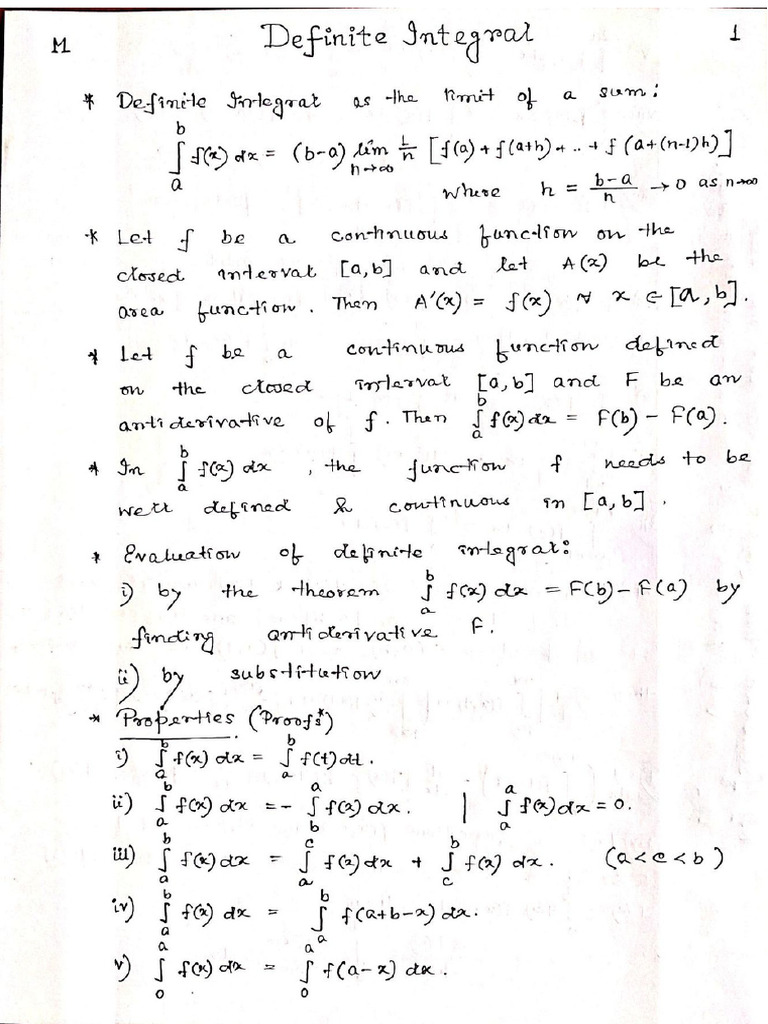 M Definite Integral 1
* Definite Integral as the limit of a sum:
∫_a^b f(x) dx = (b-a) lim_{n→∞} 1/n [f(a) + f(a+h) + .. + f(a+(n-1)h)]
where h = (b-a)/n → 0 as n→∞
* Let f be a continuous function on the
closed interval [a,b] and let A(x) be the
area function. Then A'(x) = f(x) ∀ x ∈ [a,b].
* Let f be a continuous function defined
on the closed interval [a,b] and F be an
antiderivative of f. Then ∫_a^b f(x) dx = F(b) - F(a).
* In ∫_a^b f(x) dx, the function f needs to be
well defined & continuous in [a,b].
* Evaluation of definite integral:
i) by the theorem ∫_a^b f(x) dx = F(b) - F(a) by
finding antiderivative F.
ii) by substitution
* Properties (Proofs*)
i) ∫_a^b f(x) dx = ∫_a^b f(t) dt.
ii) ∫_a^b f(x) dx = - ∫_b^a f(x) dx. | ∫_a^a f(x) dx = 0.
iii) ∫_a^b f(x) dx = ∫_a^c f(x) dx + ∫_c^b f(x) dx. (a<c<b)
iv) ∫_a^b f(x) dx = ∫_a^b f(a+b-x) dx.
v) ∫_0^a f(x) dx = ∫_0^a f(a-x) dx.